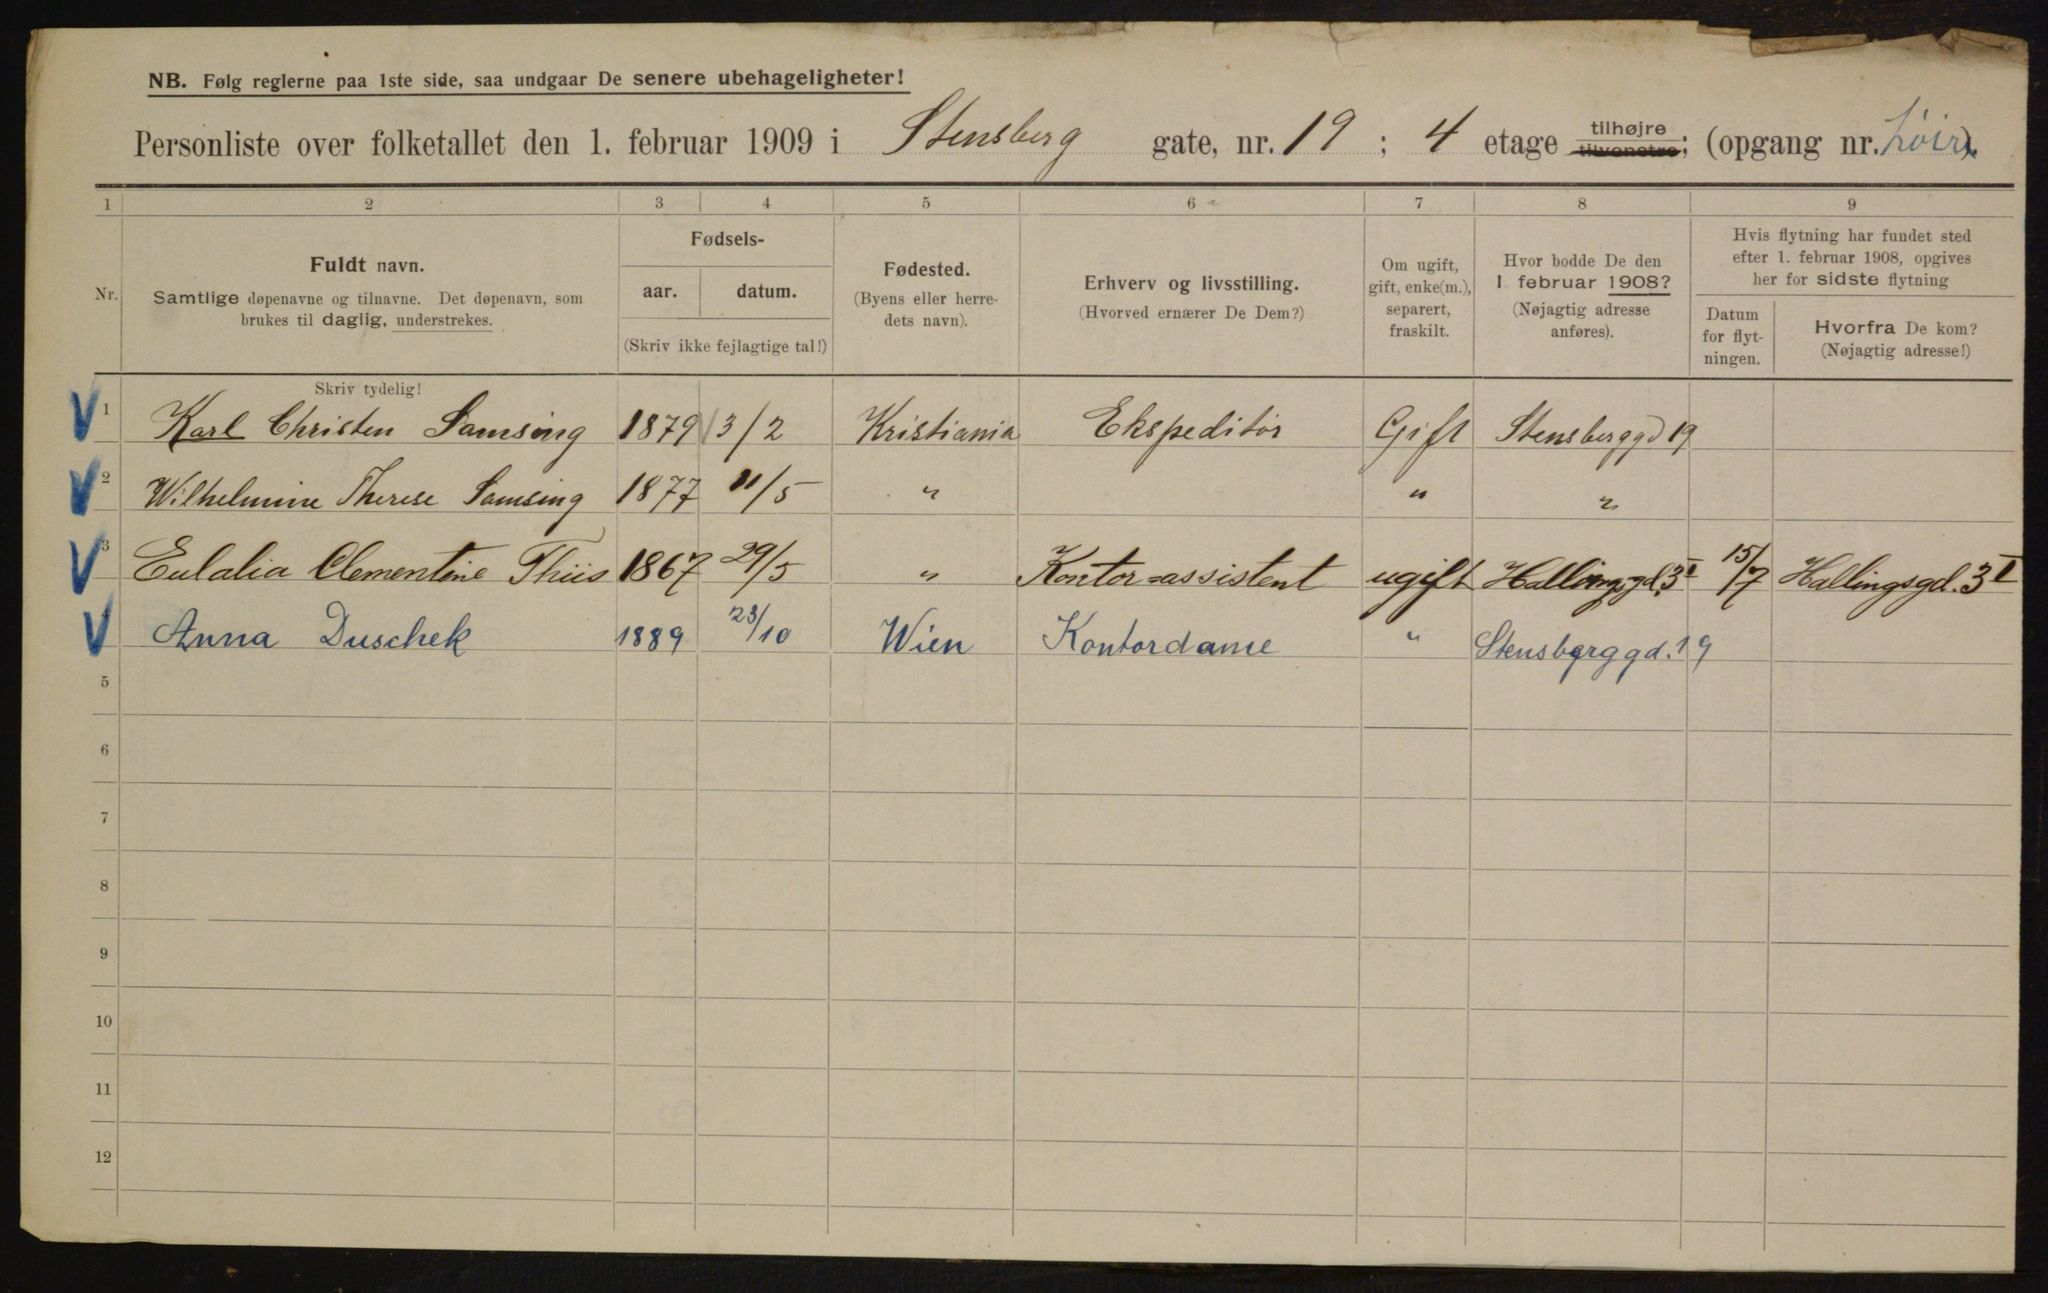 NB. Følg reglerne paa 1ste side, saa undgaar De senere ubehageligheter!
Personliste over folketallet den 1. februar 1909 i Stensberg gate, nr. 19 ; 4 etage tilhøjre tilvenstre; (opgang nr. ).
1 2 3 4 5 6 7 8 9
Nr.
Fuldt navn.
Samtlige døpenavne og tilnavne. Det døpenavn, som
brukes til daglig, understrekes.
Skriv tydelig!
Fødsels-
aar. datum.
(Skriv ikke fejlagtige tal!)
Fødested.
(Byens eller herre-
dets navn).
Erhverv og livsstilling.
(Hvorved ernærer De Dem?)
Om ugift,
gift, enke(m.),
separert,
fraskilt.
Hvor bodde De den
1 februar 1908?
(Nøjagtig adresse
anføres).
Hvis flytning har fundet sted
efter 1. februar 1908, opgives
her for sidste flytning
Datum
for flyt-
ningen.
Hvorfra De kom?
(Nøjagtig adresse!)
1 Karl Christen Samsing 1879 3/2 Kristiania Ekspeditør Gift Stensberggd 19
2 Wilhelmine Therese Samsing 1877 11/5 " " "
3 Eulalia Clementine Thiis 1867 29/5 " Kontor=assistent ugift Hallingsgd. 3 I 15/7 Hallingsgd. 3 I
4 Anna Duschek 1889 23/10 Wien Kontordame " Stensberggd. 19
5
6
7
8
9
10
11
12